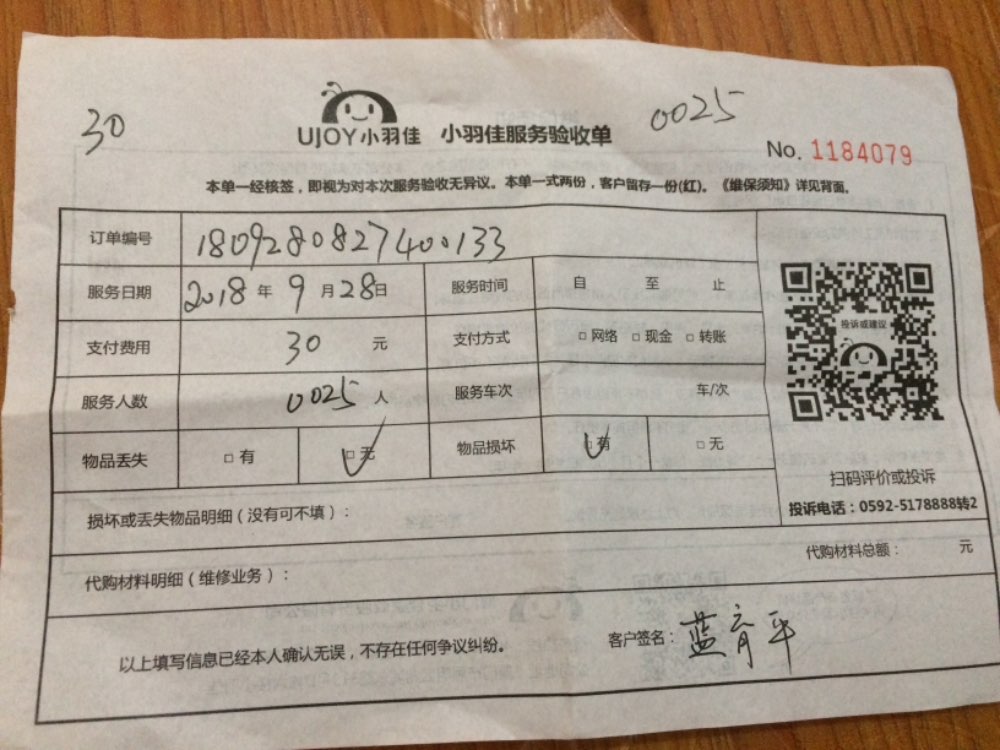 30
0025
UJOY小羽佳 小羽佳服务验收单
No. 1184079
本单一经核签，即视为对本次服务验收无异议。本单一式两份，客户留存一份(红)。《维保须知》详见背面。
订单编号 1809280827400133
服务日期 2018年9月28日 服务时间 自 至 止
支付费用 30 元 支付方式 □网络 □现金 □转账
服务人数 0025 人 服务车次 车/次
物品丢失 □有 □无 物品损坏 □有 □无
投诉或建议
扫码评价或投诉
投诉电话：0592-5178888转2
损坏或丢失物品明细（没有可不填）：
代购材料明细（维修业务）：
代购材料总额： 元
以上填写信息已经本人确认无误，不存在任何争议纠纷。
客户签名：蓝育平